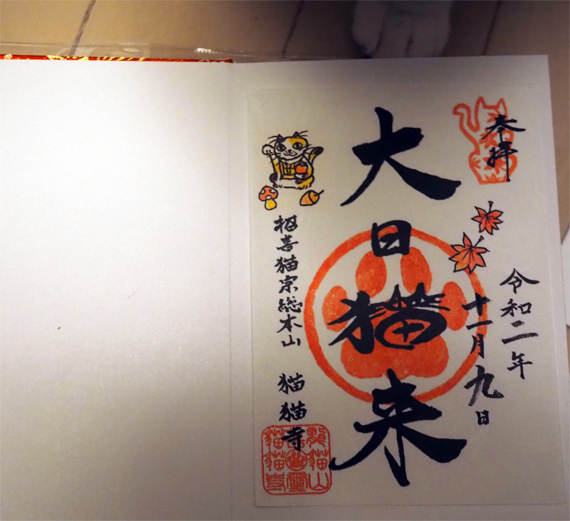 奉拝
令和二年
十一月九日
大日猫来
招喜猫宗総本山 猫猫寺